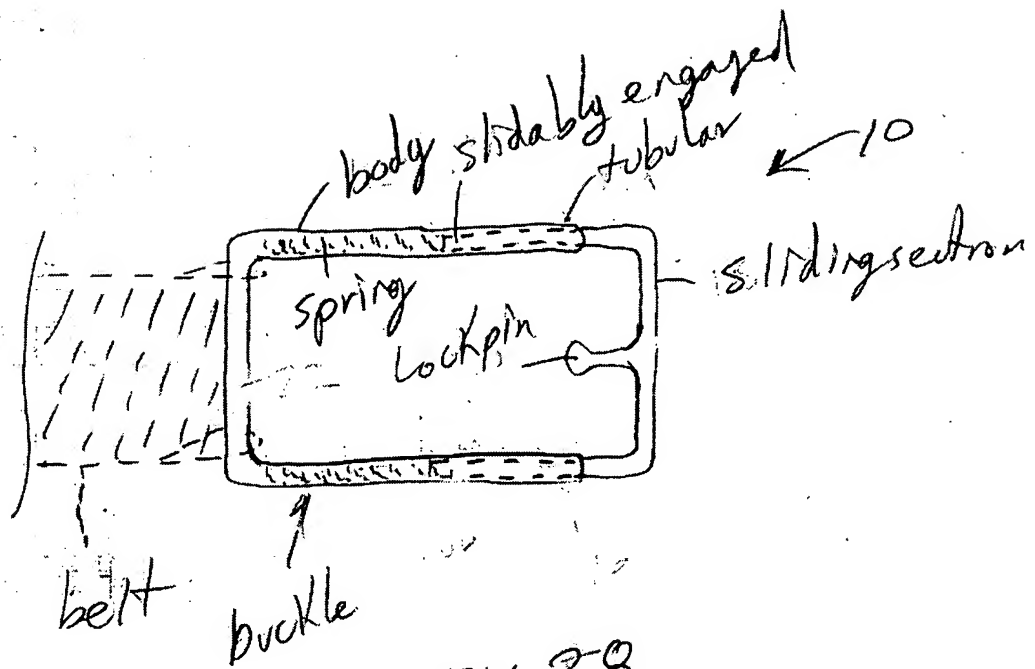 body slidably engaged
tubular
10
sliding section
spring
Lockpin
belt
buckle